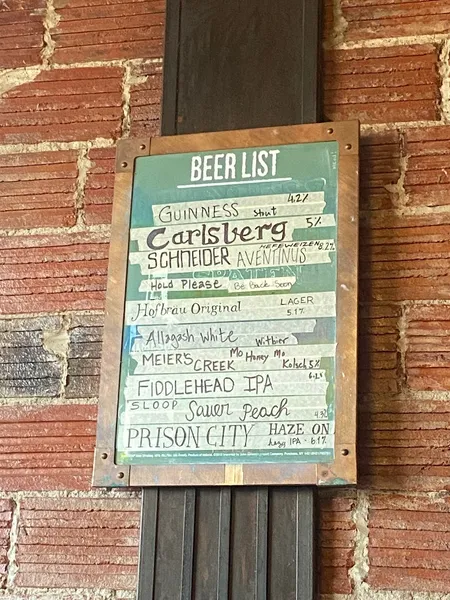 BEER LIST
GUINNESS Stout 4.2%
Carlsberg 5%
SCHNEIDER AVENTINUS HEFEWEIZEN 8.2%
Hold Please Be Back Soon
Hofbrau Original LAGER
5.1%
Allagash White Witbier
MEIER'S CREEK Mo Honey Mo Kolsch 5%
FIDDLEHEAD IPA 6.2%
SLOOP Sauer Peach
PRISON CITY HAZE ON
hazy IPA - 6.1%